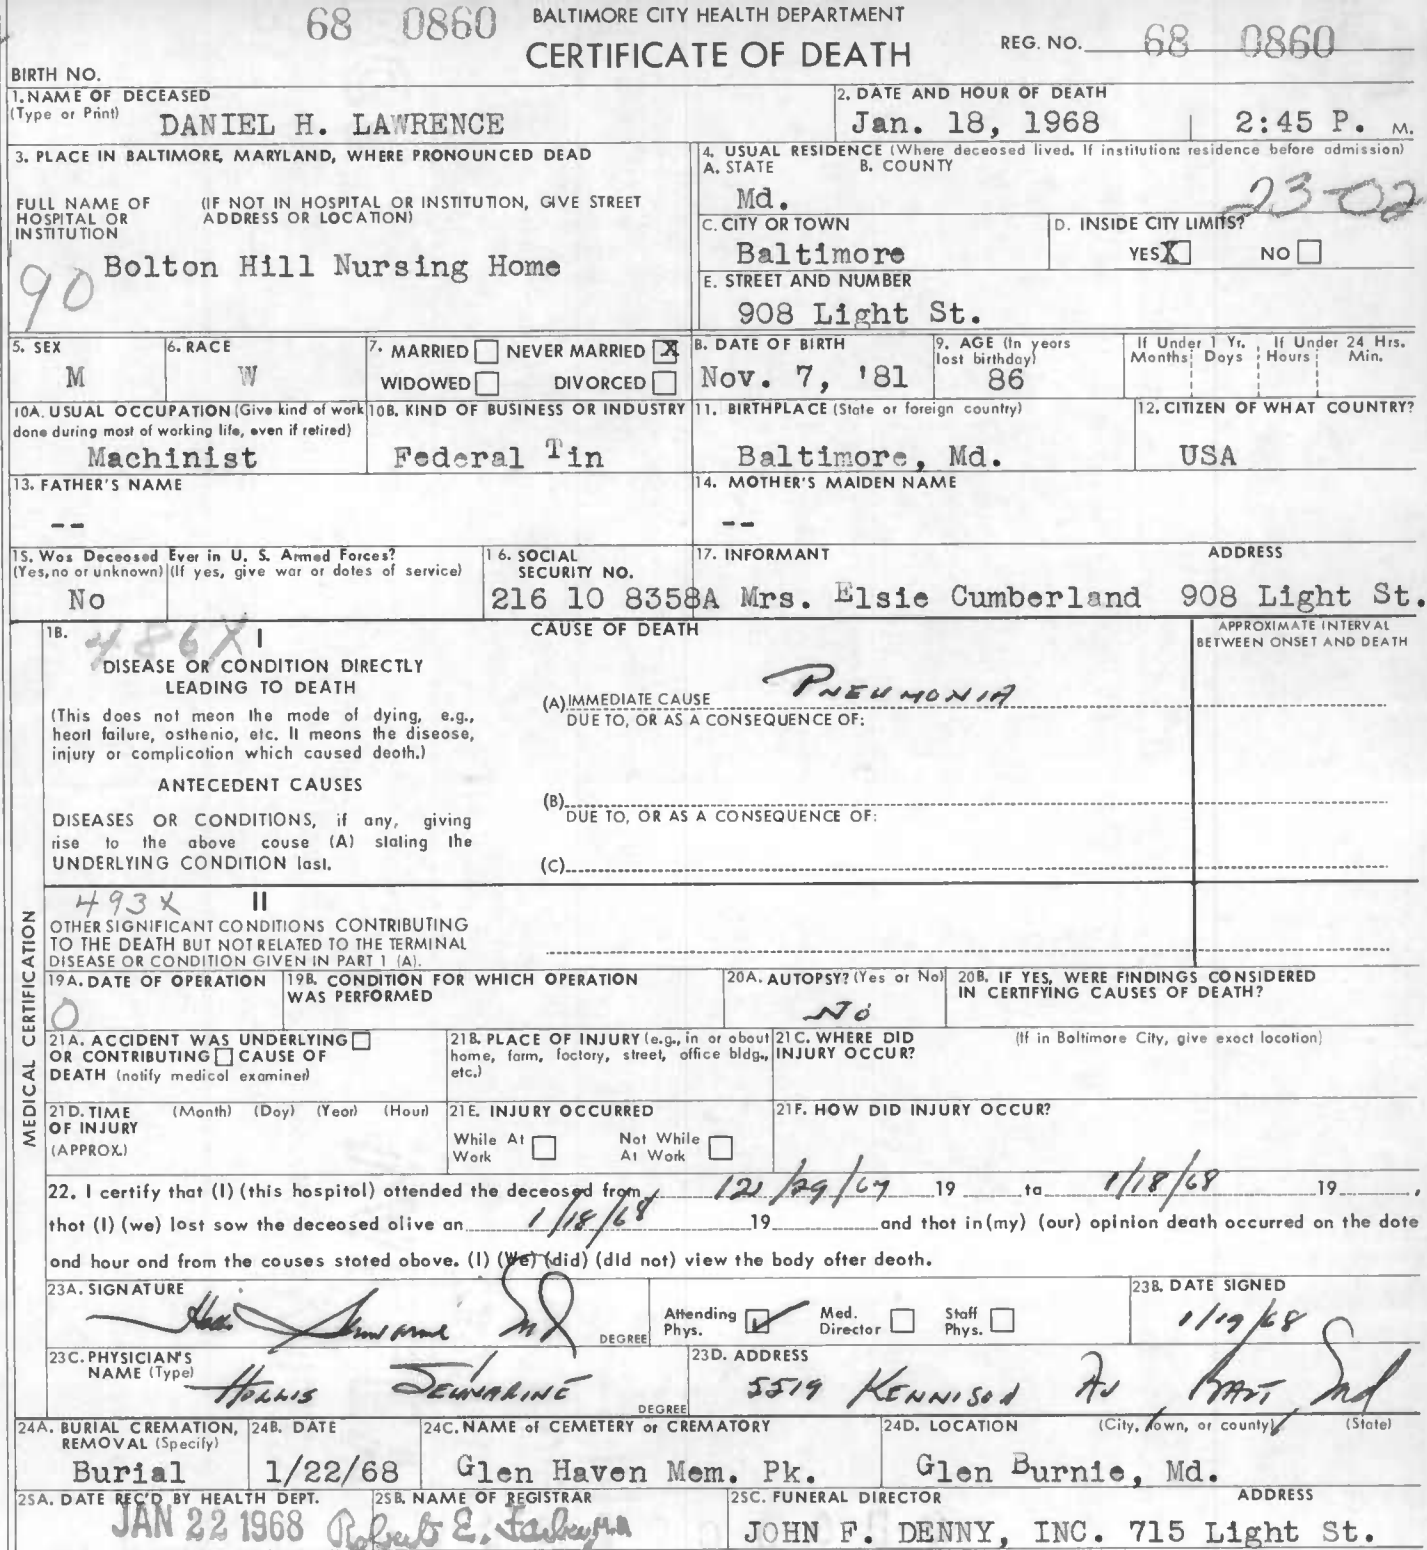 68 0860 BALTIMORE CITY HEALTH DEPARTMENT
CERTIFICATE OF DEATH REG. NO. 68 0860
BIRTH NO.
1. NAME OF DECEASED
(Type or Print) DANIEL H. LAWRENCE
2. DATE AND HOUR OF DEATH
Jan. 18, 1968 2:45 P. M.
3. PLACE IN BALTIMORE, MARYLAND, WHERE PRONOUNCED DEAD
FULL NAME OF HOSPITAL OR INSTITUTION (IF NOT IN HOSPITAL OR INSTITUTION, GIVE STREET ADDRESS OR LOCATION)
90 Bolton Hill Nursing Home
4. USUAL RESIDENCE (Where deceased lived. If institution: residence before admission)
A. STATE B. COUNTY
Md. 23-02
C. CITY OR TOWN D. INSIDE CITY LIMITS?
Baltimore YES X NO
E. STREET AND NUMBER
908 Light St.
5. SEX
M
6. RACE
W
7. MARRIED NEVER MARRIED X
WIDOWED DIVORCED
8. DATE OF BIRTH
Nov. 7, '81
9. AGE (In years last birthday)
86
If Under 1 Yr. If Under 24 Hrs.
Months Days Hours Min.
10A. USUAL OCCUPATION (Give kind of work
done during most of working life, even if retired)
Machinist
10B. KIND OF BUSINESS OR INDUSTRY
Federal Tin
11. BIRTHPLACE (State or foreign country)
Baltimore, Md.
12. CITIZEN OF WHAT COUNTRY?
USA
13. FATHER'S NAME
--
14. MOTHER'S MAIDEN NAME
--
15. Was Deceased Ever in U. S. Armed Forces?
(Yes, no or unknown) (If yes, give war or dates of service)
No
16. SOCIAL SECURITY NO.
216 10 8358A
17. INFORMANT ADDRESS
Mrs. Elsie Cumberland 908 Light St.
MEDICAL CERTIFICATION
18. 486X I
DISEASE OR CONDITION DIRECTLY
LEADING TO DEATH
(This does not mean the mode of dying, e.g.,
heart failure, asthenia, etc. It means the disease,
injury or complication which caused death.)
ANTECEDENT CAUSES
DISEASES OR CONDITIONS, if any, giving
rise to the above cause (A) stating the
UNDERLYING CONDITION last.
CAUSE OF DEATH
APPROXIMATE INTERVAL
BETWEEN ONSET AND DEATH
(A) IMMEDIATE CAUSE PNEUMONIA
DUE TO, OR AS A CONSEQUENCE OF:
(B)
DUE TO, OR AS A CONSEQUENCE OF:
(C)
493X II
OTHER SIGNIFICANT CONDITIONS CONTRIBUTING
TO THE DEATH BUT NOT RELATED TO THE TERMINAL
DISEASE OR CONDITION GIVEN IN PART 1 (A).
19A. DATE OF OPERATION
0
19B. CONDITION FOR WHICH OPERATION
WAS PERFORMED
20A. AUTOPSY? (Yes or No)
No
20B. IF YES, WERE FINDINGS CONSIDERED
IN CERTIFYING CAUSES OF DEATH?
21A. ACCIDENT WAS UNDERLYING
OR CONTRIBUTING CAUSE OF
DEATH (notify medical examiner)
21B. PLACE OF INJURY (e.g., in or about
home, farm, factory, street, office bldg.,
etc.)
21C. WHERE DID (If in Baltimore City, give exact location)
INJURY OCCUR?
21D. TIME (Month) (Day) (Year) (Hour)
OF INJURY
(APPROX.)
21E. INJURY OCCURRED
While At Work Not While At Work
21F. HOW DID INJURY OCCUR?
22. I certify that (I) (this hospital) attended the deceased from 12/29/67 19 to 1/18/68 19 ,
that (I) (we) last saw the deceased alive an 1/18/68 19 and that in (my) (our) opinion death occurred on the date
and hour and from the causes stated above. (I) (We) (did) (did not) view the body after death.
23A. SIGNATURE
MD DEGREE
Attending Phys. Med. Director Staff Phys.
23B. DATE SIGNED
1/19/68
23C. PHYSICIAN'S
NAME (Type) HOLLIS SEUNARINE DEGREE
23D. ADDRESS
5519 KENNISON AV BALT, Md
24A. BURIAL CREMATION,
REMOVAL (Specify)
Burial
24B. DATE
1/22/68
24C. NAME of CEMETERY or CREMATORY
Glen Haven Mem. Pk.
24D. LOCATION (City, town, or county) (State)
Glen Burnie, Md.
25A. DATE REC'D BY HEALTH DEPT.
JAN 22 1968
25B. NAME OF REGISTRAR
Robert E. Farber, M.D.
25C. FUNERAL DIRECTOR ADDRESS
JOHN F. DENNY, INC. 715 Light St.